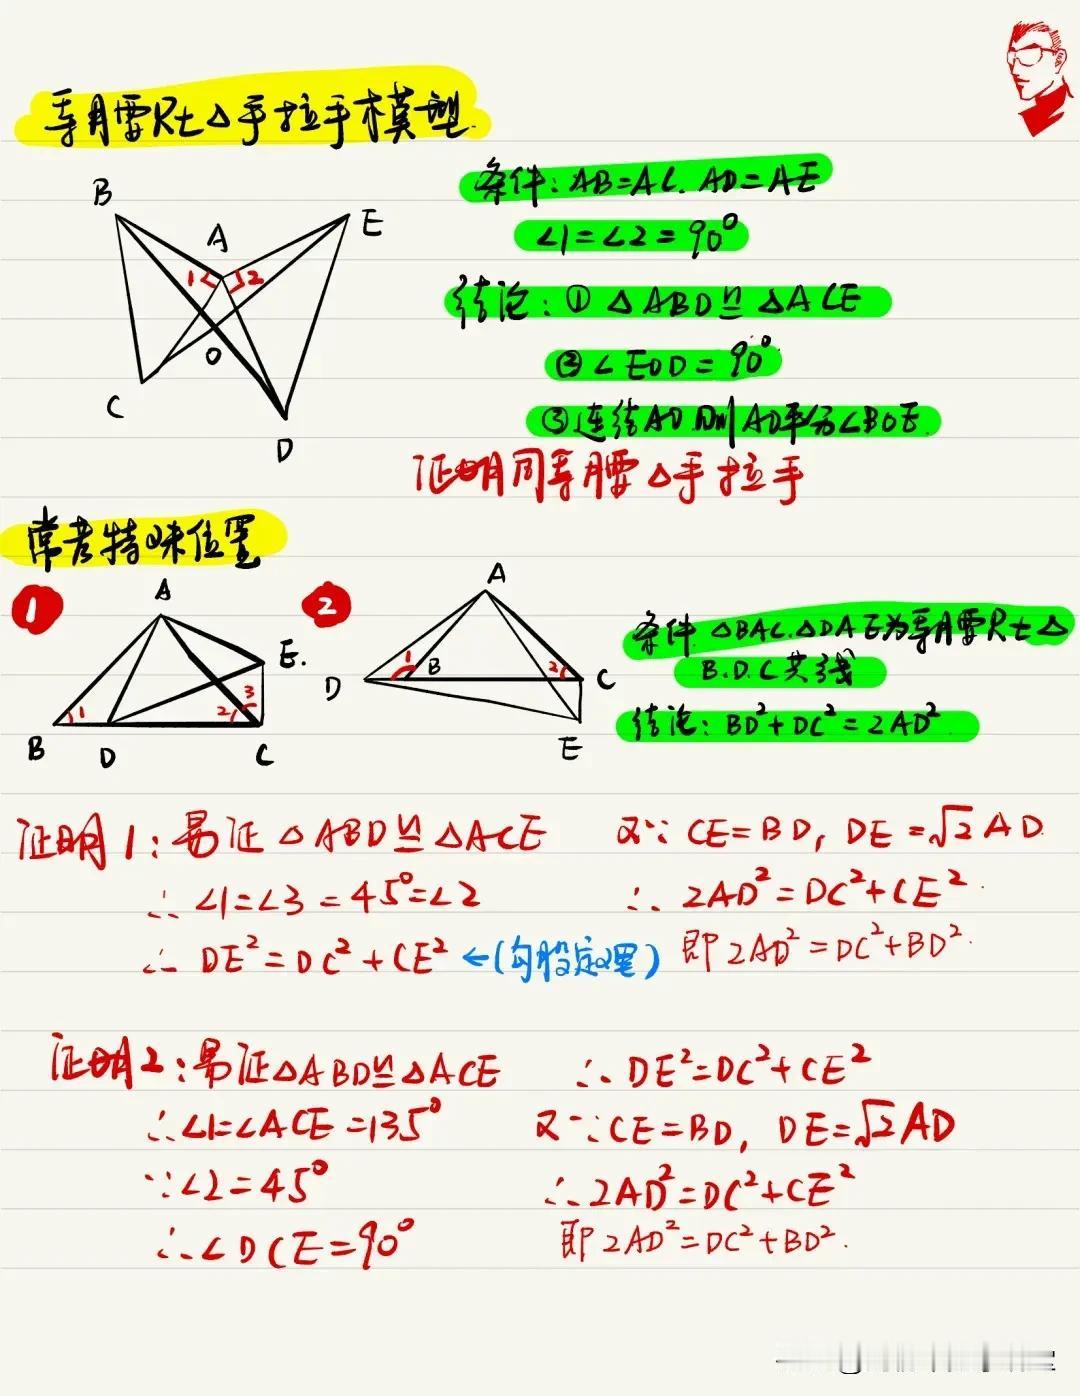 等腰Rt△手拉手模型.
B
A
E
1
2
O
C
D
条件:AB=AC. AD=AE
∠1=∠2=90°
结论:① △ABD≌△ACE
②∠EOD=90°
③连结AO.则AO平分∠BOE.
证明同等腰△手拉手
常考特殊位置
1
A
E.
1
2
3
B
D
C
2
A
D
1
B
2
C
E
条件 △BAC.△DAE为等腰Rt△
B.D.C共线
结论:BD²+DC²=2AD²
证明1:易证△ABD≌△ACE
∴∠1=∠3=45°=∠2
∴DE²=DC²+CE² ←(勾股定理)
又∵CE=BD, DE=√2AD.
∴2AD²=DC²+CE².
即2AD²=DC²+BD².
证明2:易证△ABD≌△ACE
∴∠1=∠ACE=135°
∵∠2=45°
∴∠DCE=90°
∴DE²=DC²+CE²
又∵CE=BD, DE=√2AD
∴2AD²=DC²+CE²
即2AD²=DC²+BD².